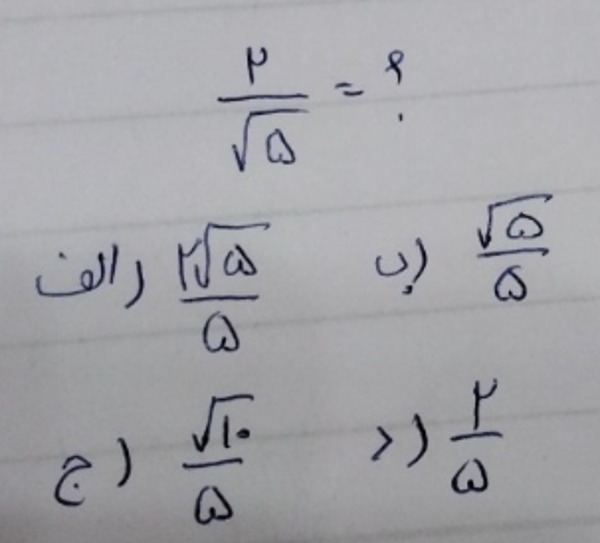 ۲/√۵ = ؟
الف) ۲√۵/۵ ب) √۵/۵
ج) √۱۰/۵ د) ۲/۵